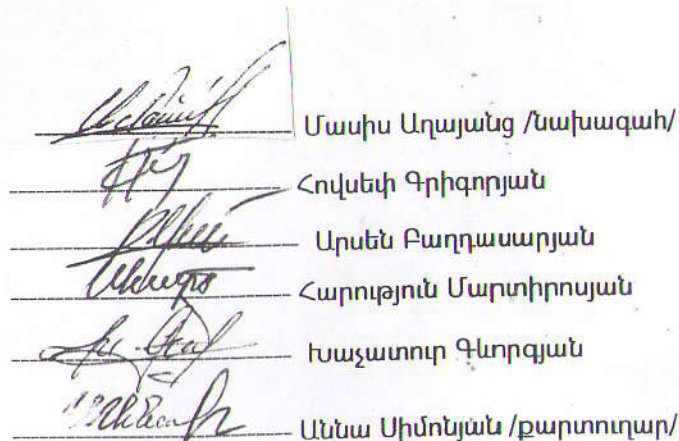 Մասիս Աղայանց /նախագահ/
Հովսեփ Գրիգորյան
Արսեն Բաղդասարյան
Հարություն Մարտիրոսյան
Խաչատուր Գևորգյան
Աննա Սիմոնյան /քարտուղար/